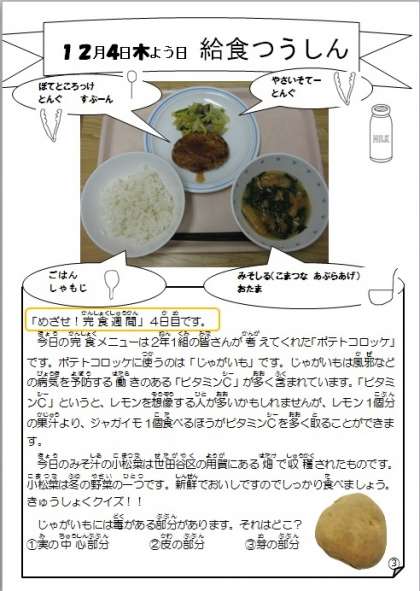 12月4日木よう日 給食つうしん
ぽてところっけ
とんぐ すぷーん
やさいそてー
とんぐ
MILK
ごはん
しゃもじ
みそしる(こまつな あぶらあげ)
おたま
「めざせ!完食週間」4日目です。
今日の完食メニューは2年1組の皆さんが考えてくれた「ポテトコロッケ」
です。ポテトコロッケに使うのは「じゃがいも」です。じゃがいもは風邪など
の病気を予防する働きのある「ビタミンC」が多く含まれています。「ビタミ
ンC」というと、レモンを想像する人が多いかもしれませんが、レモン1個分
の果汁より、ジャガイモ1個食べるほうがビタミンCを多く取ることができま
す。
今日のみそ汁の小松菜は世田谷区の用賀にある畑で収穫されたものです。
小松菜は冬の野菜の一つです。新鮮でおいしですのでしっかり食べましょう。
きゅうしょくクイズ!!
じゃがいもには毒がある部分があります。それはどこ?
①実の中心部分 ②皮の部分 ③芽の部分
③